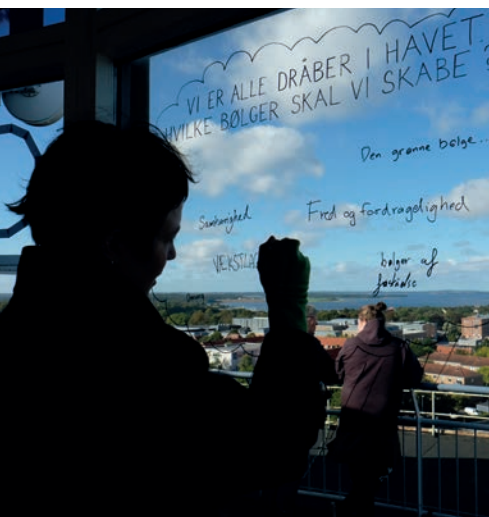 VI ER ALLE DRÅBER I HAVET.
HVILKE BØLGER SKAL VI SKABE
Den grønne bølge...
Samhørighed
Fred og fordragelighed
VÆKSTLAG
bølger af
forståelse